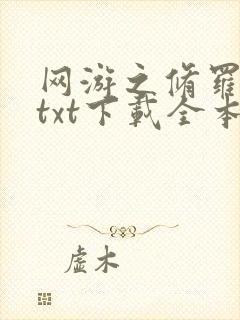 网游之脩羅
txt下載全本
虚木